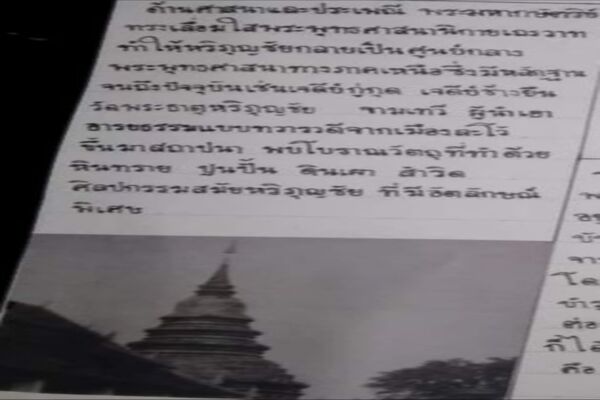 ด้านศาสนาและประเพณี พระมหากษัตริย์
ทรงเลื่อมใสพระพุทธศาสนานิกายเถรวาท
ทำให้หริภุญชัยกลายเป็นศูนย์กลาง
พระพุทธศาสนาทางภาคเหนือซึ่งมีหลักฐาน
จนถึงปัจจุบันเช่นเจดีย์กู่กุด เจดีย์ช้างยืน
วัดพระธาตุหริภุญชัย จามเทวี ผู้นำเอา
อารยธรรมแบบทวารวดีจากเมืองละโว้
ขึ้นมาสถาปนา พบโบราณวัตถุที่ทำด้วย
หินทราย ปูนปั้น ดินเผา สำริด
ศิลปกรรมสมัยหริภุญชัย ที่มีอัตลักษณ์
พิเศษ
ต่อ
คือ